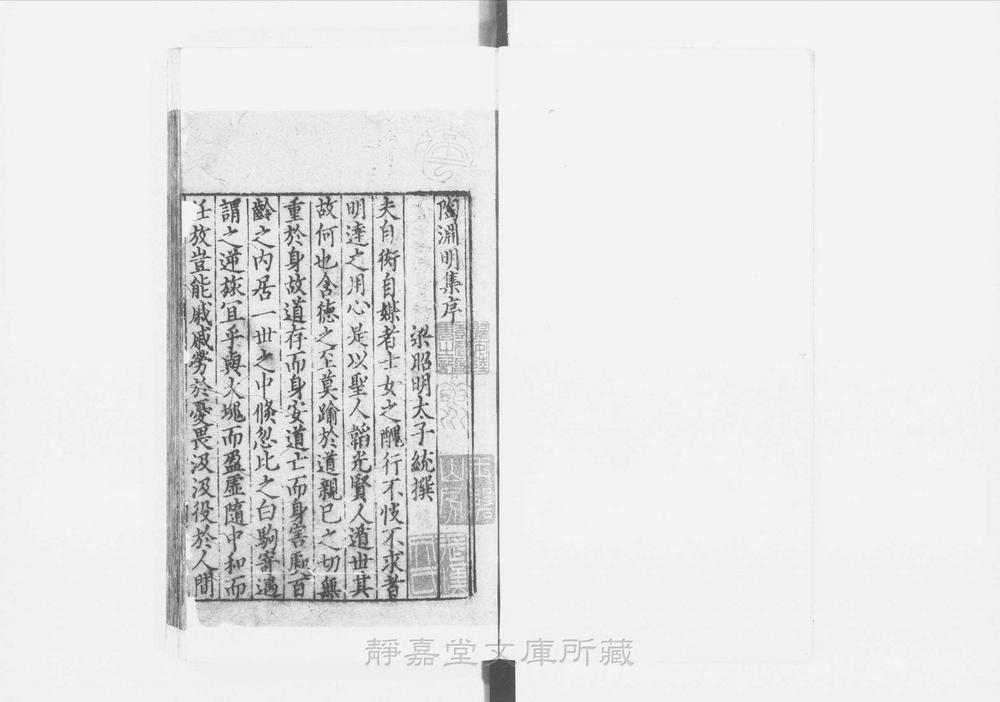 陶淵明集序
梁昭明太子統撰
夫自衒自媒者士女之醜行不忮不求者
明達之用心是以聖人韜光賢人遁世其
故何也含德之至莫踰於道親已之切無
重於身故道存而身安道亡而身害處百
齡之內居一世之中倏忽比之白駒寄遇
謂之逆旅宜乎與大塊而盈虛隨中和而
任放豈能戚戚勞於憂畏汲汲役於人間
靜嘉堂文庫所藏